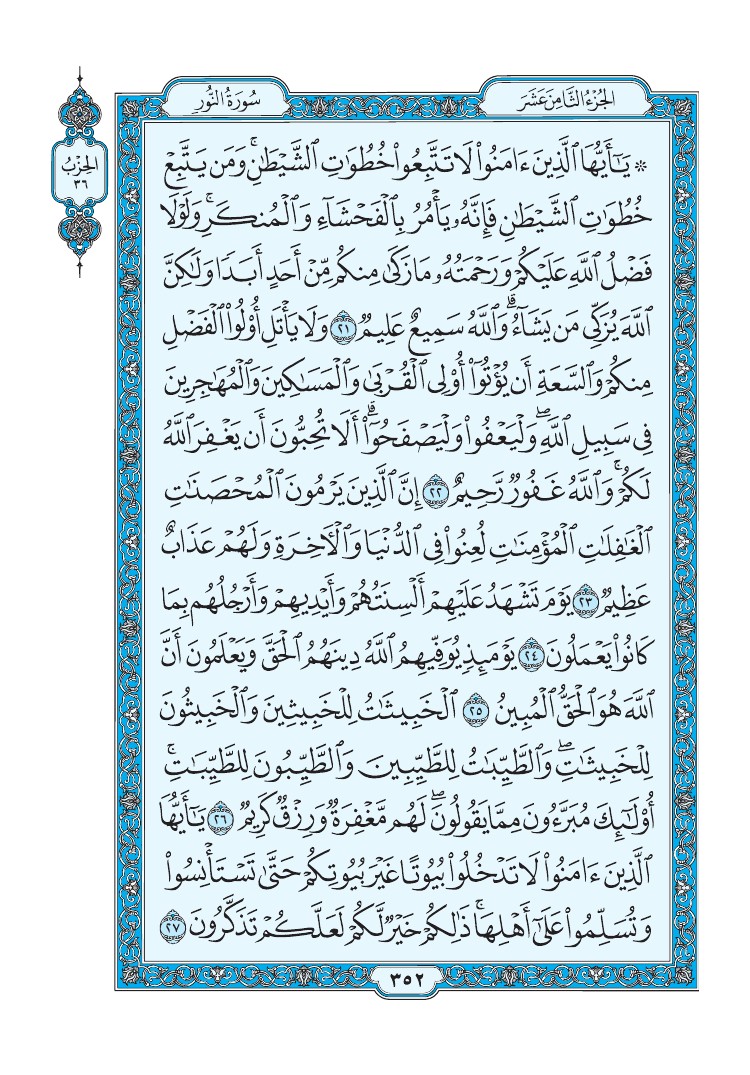 الجُزْءُ الثَّامِنَ عَشَرَ
سُورَةُ النُّورِ
الحِزْبُ
٣٦
* يَـٰٓأَيُّهَا ٱلَّذِينَ ءَامَنُوا۟ لَا تَتَّبِعُوا۟ خُطُوَٰتِ ٱلشَّيْطَـٰنِ ۚ وَمَن يَتَّبِعْ
خُطُوَٰتِ ٱلشَّيْطَـٰنِ فَإِنَّهُۥ يَأْمُرُ بِٱلْفَحْشَآءِ وَٱلْمُنكَرِ ۚ وَلَوْلَا
فَضْلُ ٱللَّهِ عَلَيْكُمْ وَرَحْمَتُهُۥ مَا زَكَىٰ مِنكُم مِّنْ أَحَدٍ أَبَدًا وَلَـٰكِنَّ
ٱللَّهَ يُزَكِّى مَن يَشَآءُ ۗ وَٱللَّهُ سَمِيعٌ عَلِيمٌ ٢١ وَلَا يَأْتَلِ أُو۟لُوا۟ ٱلْفَضْلِ
مِنكُمْ وَٱلسَّعَةِ أَن يُؤْتُوٓا۟ أُو۟لِى ٱلْقُرْبَىٰ وَٱلْمَسَـٰكِينَ وَٱلْمُهَـٰجِرِينَ
فِى سَبِيلِ ٱللَّهِ ۖ وَلْيَعْفُوا۟ وَلْيَصْفَحُوٓا۟ ۗ أَلَا تُحِبُّونَ أَن يَغْفِرَ ٱللَّهُ
لَكُمْ ۚ وَٱللَّهُ غَفُورٌ رَّحِيمٌ ٢٢ إِنَّ ٱلَّذِينَ يَرْمُونَ ٱلْمُحْصَنَـٰتِ
ٱلْغَـٰفِلَـٰتِ ٱلْمُؤْمِنَـٰتِ لُعِنُوا۟ فِى ٱلدُّنْيَا وَٱلْـَٔاخِرَةِ وَلَهُمْ عَذَابٌ
عَظِيمٌ ٢٣ يَوْمَ تَشْهَدُ عَلَيْهِمْ أَلْسِنَتُهُمْ وَأَيْدِيهِمْ وَأَرْجُلُهُم بِمَا
كَانُوا۟ يَعْمَلُونَ ٢٤ يَوْمَئِذٍ يُوَفِّيهِمُ ٱللَّهُ دِينَهُمُ ٱلْحَقَّ وَيَعْلَمُونَ أَنَّ
ٱللَّهَ هُوَ ٱلْحَقُّ ٱلْمُبِينُ ٢٥ ٱلْخَبِيثَـٰتُ لِلْخَبِيثِينَ وَٱلْخَبِيثُونَ
لِلْخَبِيثَـٰتِ ۖ وَٱلطَّيِّبَـٰتُ لِلطَّيِّبِينَ وَٱلطَّيِّبُونَ لِلطَّيِّبَـٰتِ ۚ
أُو۟لَـٰٓئِكَ مُبَرَّءُونَ مِمَّا يَقُولُونَ ۖ لَهُم مَّغْفِرَةٌ وَرِزْقٌ كَرِيمٌ ٢٦ يَـٰٓأَيُّهَا
ٱلَّذِينَ ءَامَنُوا۟ لَا تَدْخُلُوا۟ بُيُوتًا غَيْرَ بُيُوتِكُمْ حَتَّىٰ تَسْتَأْنِسُوا۟
وَتُسَلِّمُوا۟ عَلَىٰٓ أَهْلِهَا ۚ ذَٰلِكُمْ خَيْرٌ لَّكُمْ لَعَلَّكُمْ تَذَكَّرُونَ ٢٧
٣٥٢